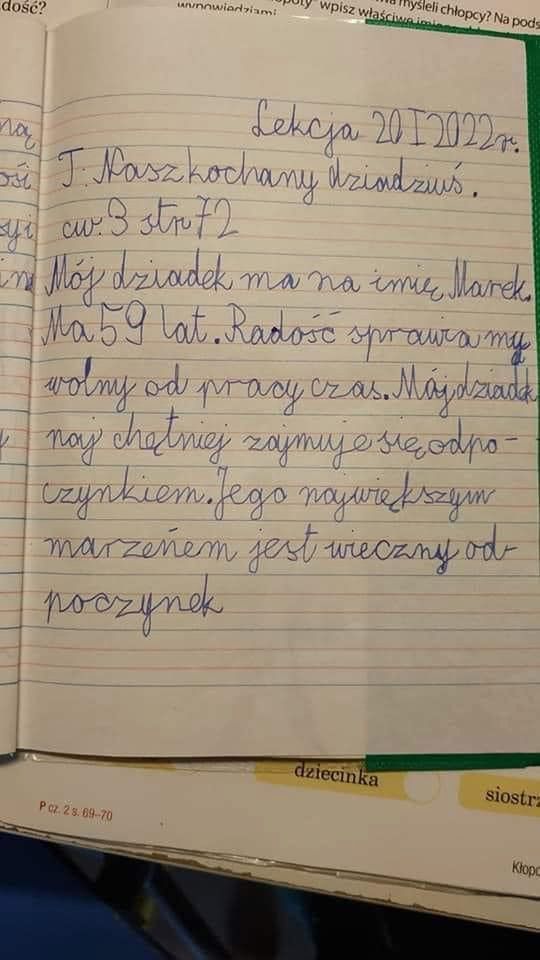 dość?
myśleli chłopcy? Na pods
wpisz właściwe
wypowiedziami
ną
ości
syi
Lekcja 20 I 2022r.
T: Nasz kochany dziadziuś.
ćw. 3 str 72
Mój dziadek ma na imię Marek.
Ma 59 lat. Radość sprawia my
wolny od pracy czas. Mój dziadek
naj chętniej zajmuje się odpo-
czynkiem. Jego największym
marzeńem jest wieczny od-
poczynek
dziecinka
siostrz
P cz. 2 s. 69–70
Kłopo